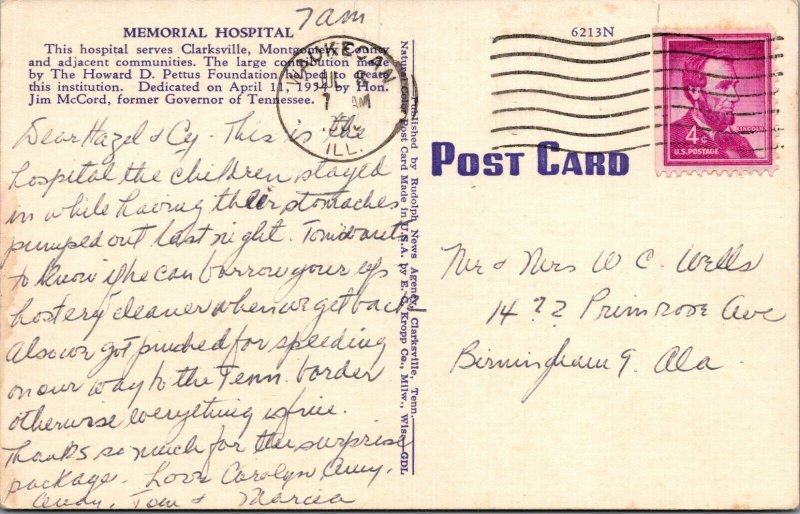 7am
MEMORIAL HOSPITAL
This hospital serves Clarksville, Montgomery County
and adjacent communities. The large contribution made
by The Howard D. Pettus Foundation helped to create
this institution. Dedicated on April 11, 1954 by Hon.
Jim McCord, former Governor of Tennessee.
Dear Hazel & Cy - This is the
hospital the children stayed
in while having their stomaches
pumped out last night. Tom wants
to know if he can borrow your up
hostery cleaner when we get back
Also we got pinched for speeding
on our way to the Tenn. border
otherwise everything is fine.
Thanks so much for the surprise
package. Love Carolyn Amy,
Andy, Tom & Marcia
WAUKEGAN
ILL.
Published by Rudolph News Agency, Clarksville, Tenn.
Natural Color Post Card Made in U.S.A. by E. C. Kropp Co., Milw., Wis.-GDL
6213N
POST CARD
4¢
LINCOLN
U.S. POSTAGE
Mr & Mrs W C. Wells
1422 Primrose Ave
Birmingham 9. Ala